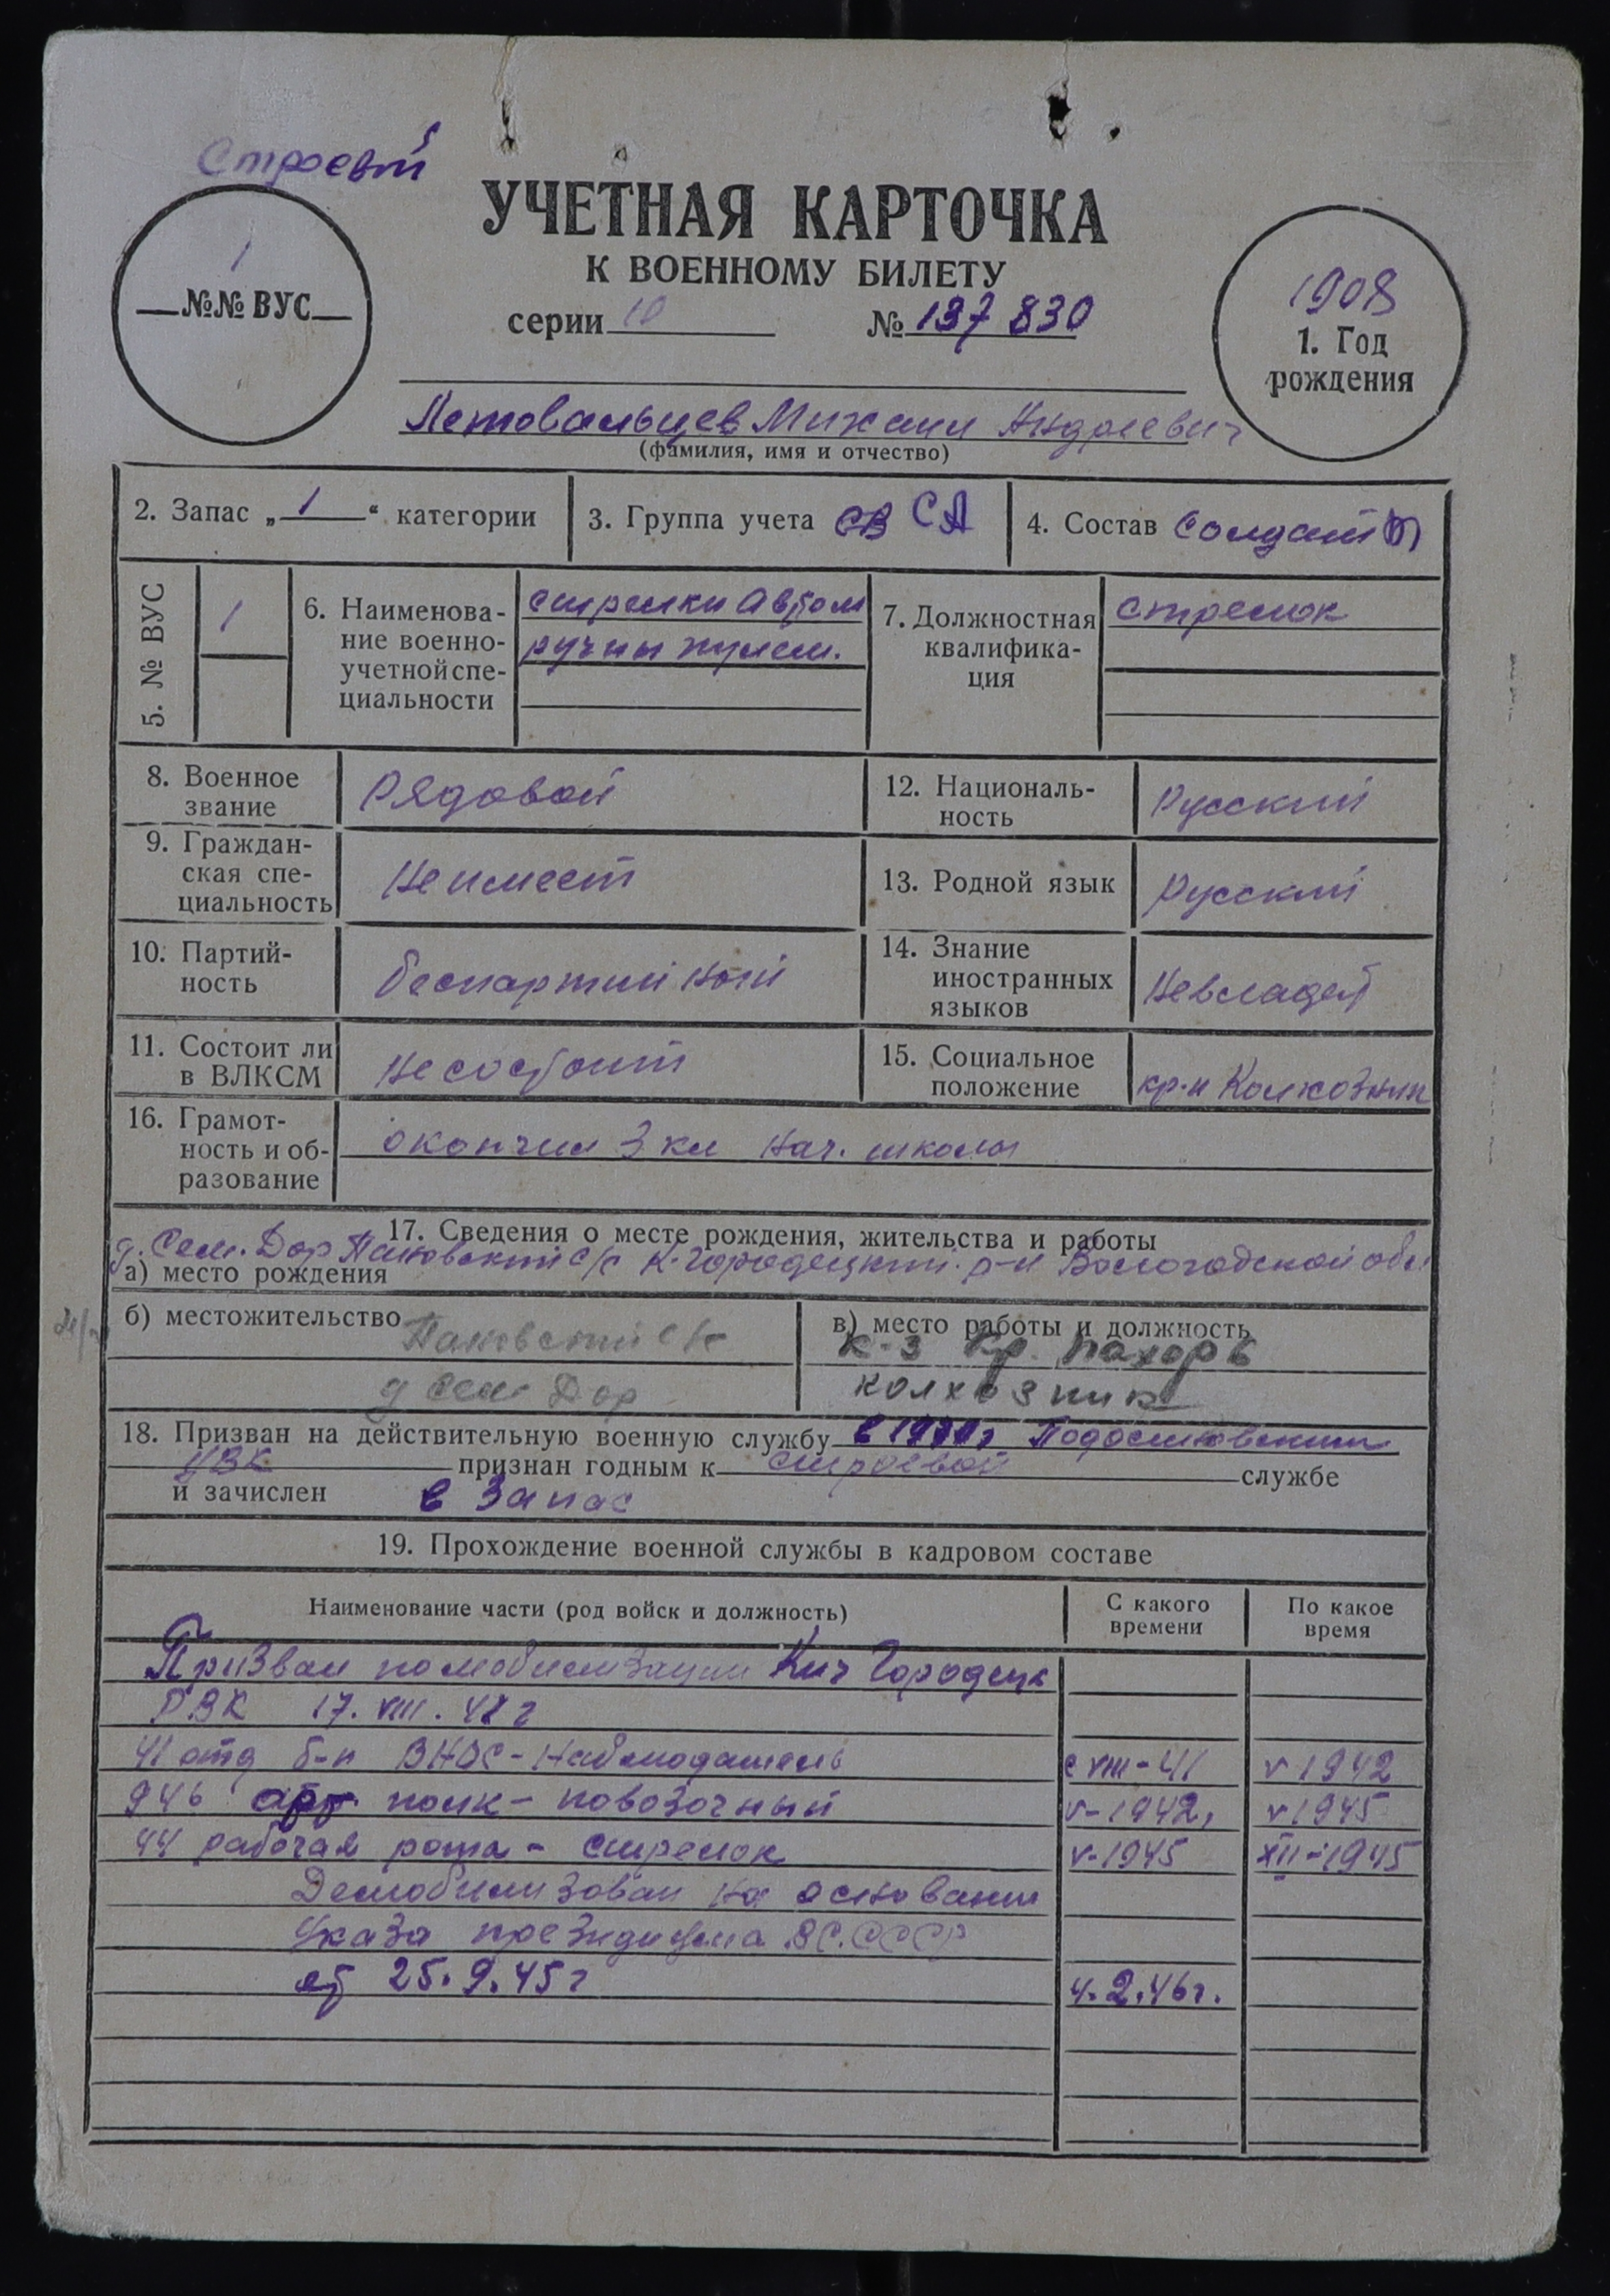 Строевой
УЧЕТНАЯ КАРТОЧКА
К ВОЕННОМУ БИЛЕТУ
1
№№ ВУС
серии 10 № 137 830
1908
1. Год
рождения
Петовальцев Михаил Андреевич
(фамилия, имя и отчество)
2. Запас „1“ категории
3. Группа учета СВ СА
4. Состав солдат
5. № ВУС
1
6. Наименова-
ние военно-
учетной спе-
циальности
стрелки Автом
ручны пулем.
7. Должностная
квалифика-
ция
стрелок
8. Военное
звание
Рядовой
12. Националь-
ность
Русский
9. Граждан-
ская спе-
циальность
Не имеет
13. Родной язык
Русский
10. Партий-
ность
беспартийный
14. Знание
иностранных
языков
Не владеет
11. Состоит ли
в ВЛКСМ
Не состоит
15. Социальное
положение
кр-н Колхозник
16. Грамот-
ность и об-
разование
окончил 3 кл нач. школы
17. Сведения о месте рождения, жительства и работы
д. Сем. Дор Пановский с/с К-Городецкий р-н Вологодской обл
а) место рождения
б) местожительство Пановский с/с
д Сем Дор
в) место работы и должность
К-з Кр. Пахорь
колхозник
18. Призван на действительную военную службу в Подосиновским
УВК признан годным к строевой службе
и зачислен в Запас
19. Прохождение военной службы в кадровом составе
Наименование части (род войск и должность)
С какого
времени
По какое
время
Призван по мобилизации Кич Городецк
РВК 17. VIII. г
41 отд б-н ВНОС - Наблюдатель с VIII-41 V 1942
946 арт. полк - повозочный V-1942, V 1945
44 рабочая рота - стрелок V-1945 XII-1945
Демобилизован на основании
Указа президиума ВС. СССР
от 25.9.45 г 4.2.46г.